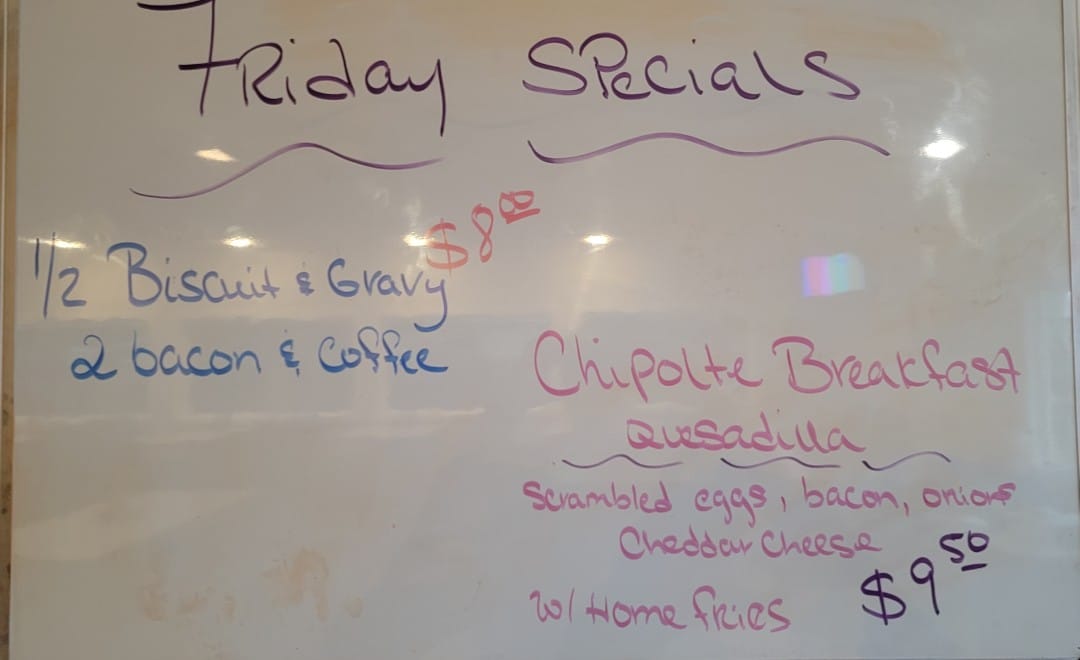 Friday Specials
$8.00
1/2 Biscuit & Gravy
2 bacon & Coffee
Chipolte Breakfast
Quesadilla
Scrambled eggs, bacon, onions
Cheddar Cheese
w/ Home fries $9.50